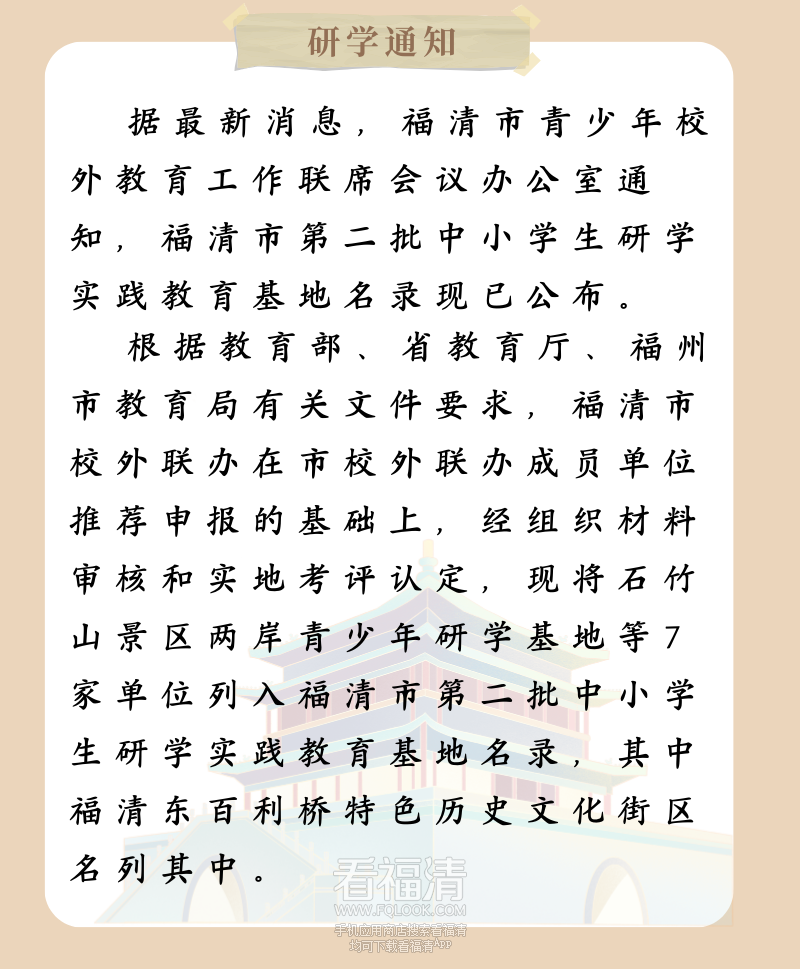 研学通知
据最新消息，福清市青少年校
外教育工作联席会议办公室通
知，福清市第二批中小学生研学
实践教育基地名录现已公布。
根据教育部、省教育厅、福州
市教育局有关文件要求，福清市
校外联办在市校外联办成员单位
推荐申报的基础上，经组织材料
审核和实地考评认定，现将石竹
山景区两岸青少年研学基地等7
家单位列入福清市第二批中小学
生研学实践教育基地名录，其中
福清东百利桥特色历史文化街区
名列其中。
看福清
WWW.FQLOOK.COM
手机应用商店搜索看福清
均可下载看福清APP